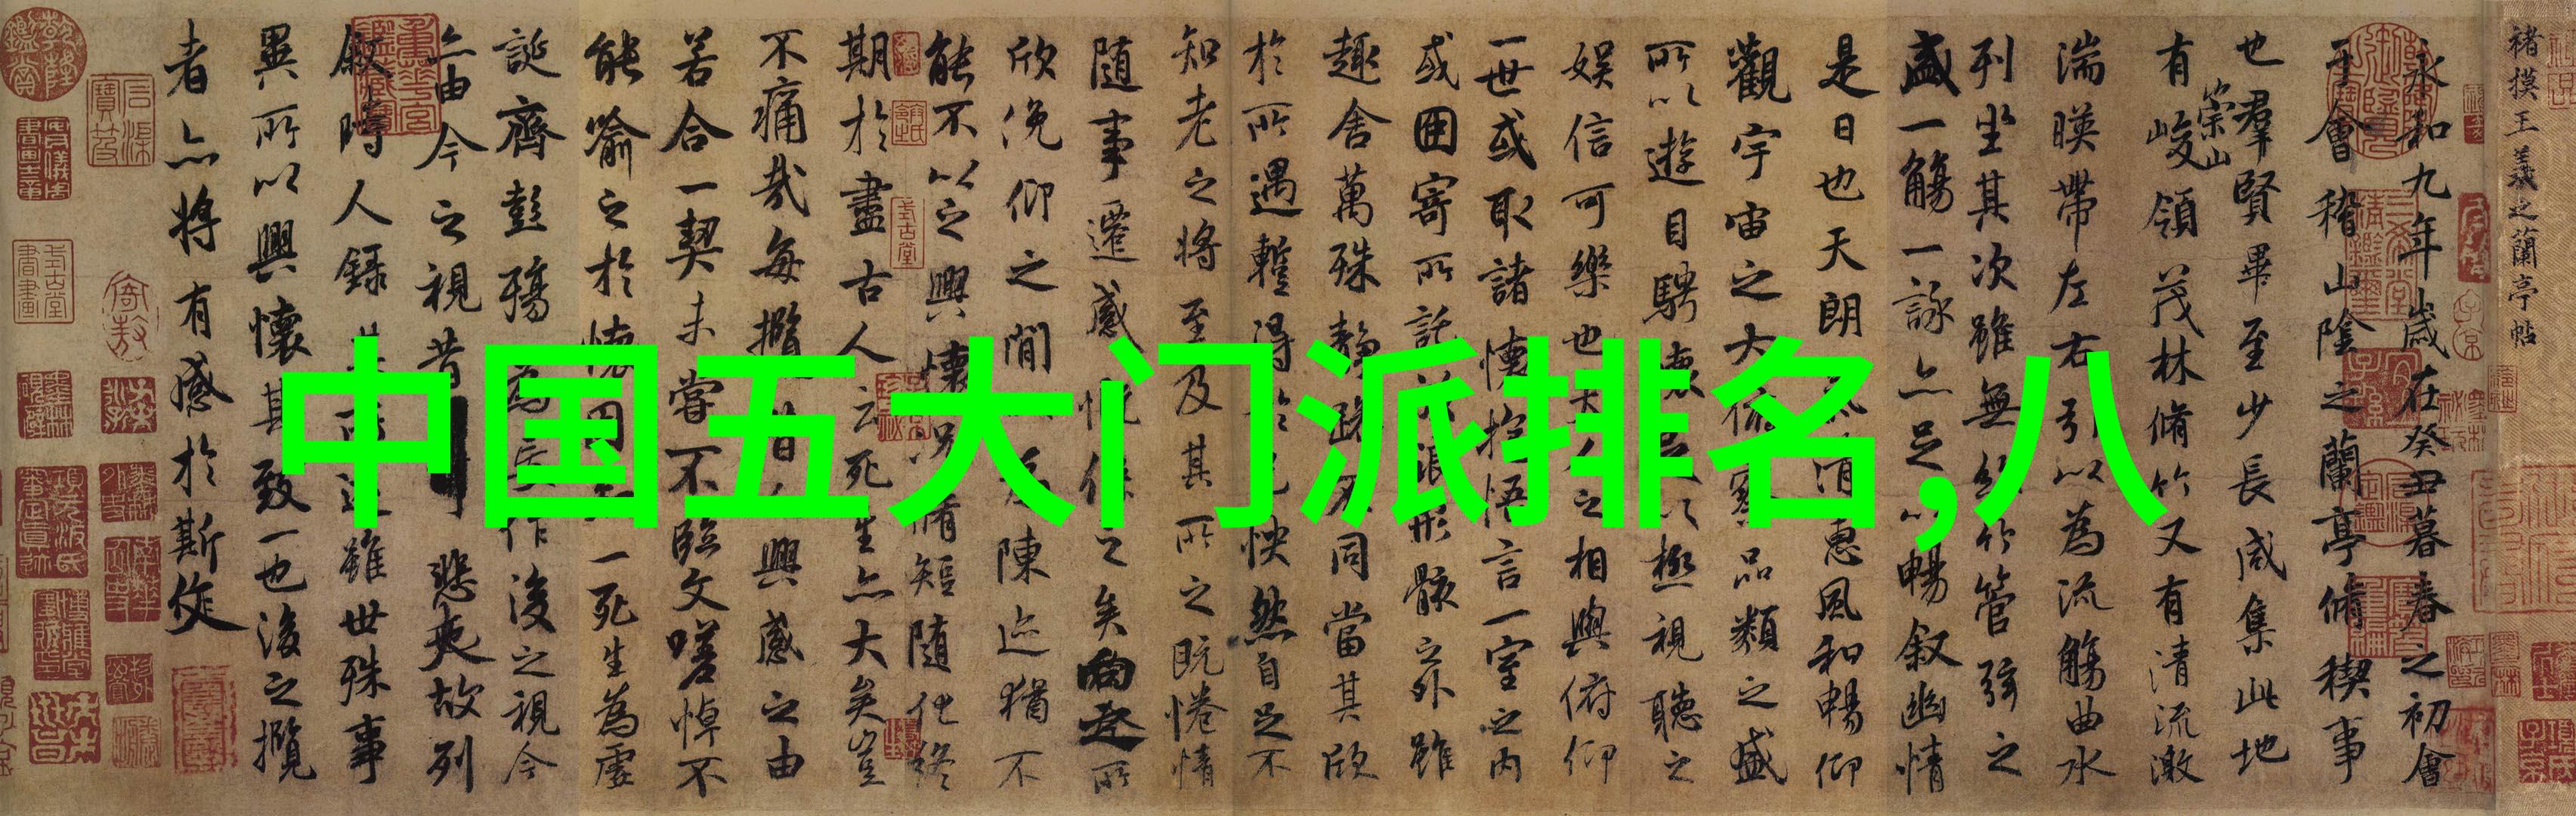 中国五大门派排名,八
褚摸王羲之蘭亭帖
永和九年歲在癸丑暮春之初會
于會稽山陰之蘭亭脩稧事
也羣賢畢至少長咸集此地
有崇山峻領茂林脩竹又有清流激
湍暎帶左右引以為流觴曲水
列坐其次雖無絲竹管弦之
盛一觴一詠亦足以暢叙幽情
是日也天朗氣清惠風和暢仰
觀宇宙之大俯察品類之盛
所以遊目騁懷足以極視聽之
娛信可樂也夫人之相與俯仰
一世或取諸懷抱悟言一室之內
或因寄所託放浪形骸之外雖
趣舍萬殊靜躁不同當其欣
於所遇蹔得於己怏然自足不
知老之將至及其所之既惓情
隨事遷感慨係之矣向之所
欣俛仰之閒以為陳迹猶不
能不以之興懷況脩短隨化終
期於盡古人云死生亦大矣豈
不痛哉每攬昔人興感之由
若合一契未嘗不臨文嗟悼不
能喻之於懷固知一死生為虛
誕齊彭殤為妄作後之視今
亦由今之視昔悲夫故列
叙時人錄其所述雖世殊事
異所以興懷其致一也後之攬
者亦將有感於斯文